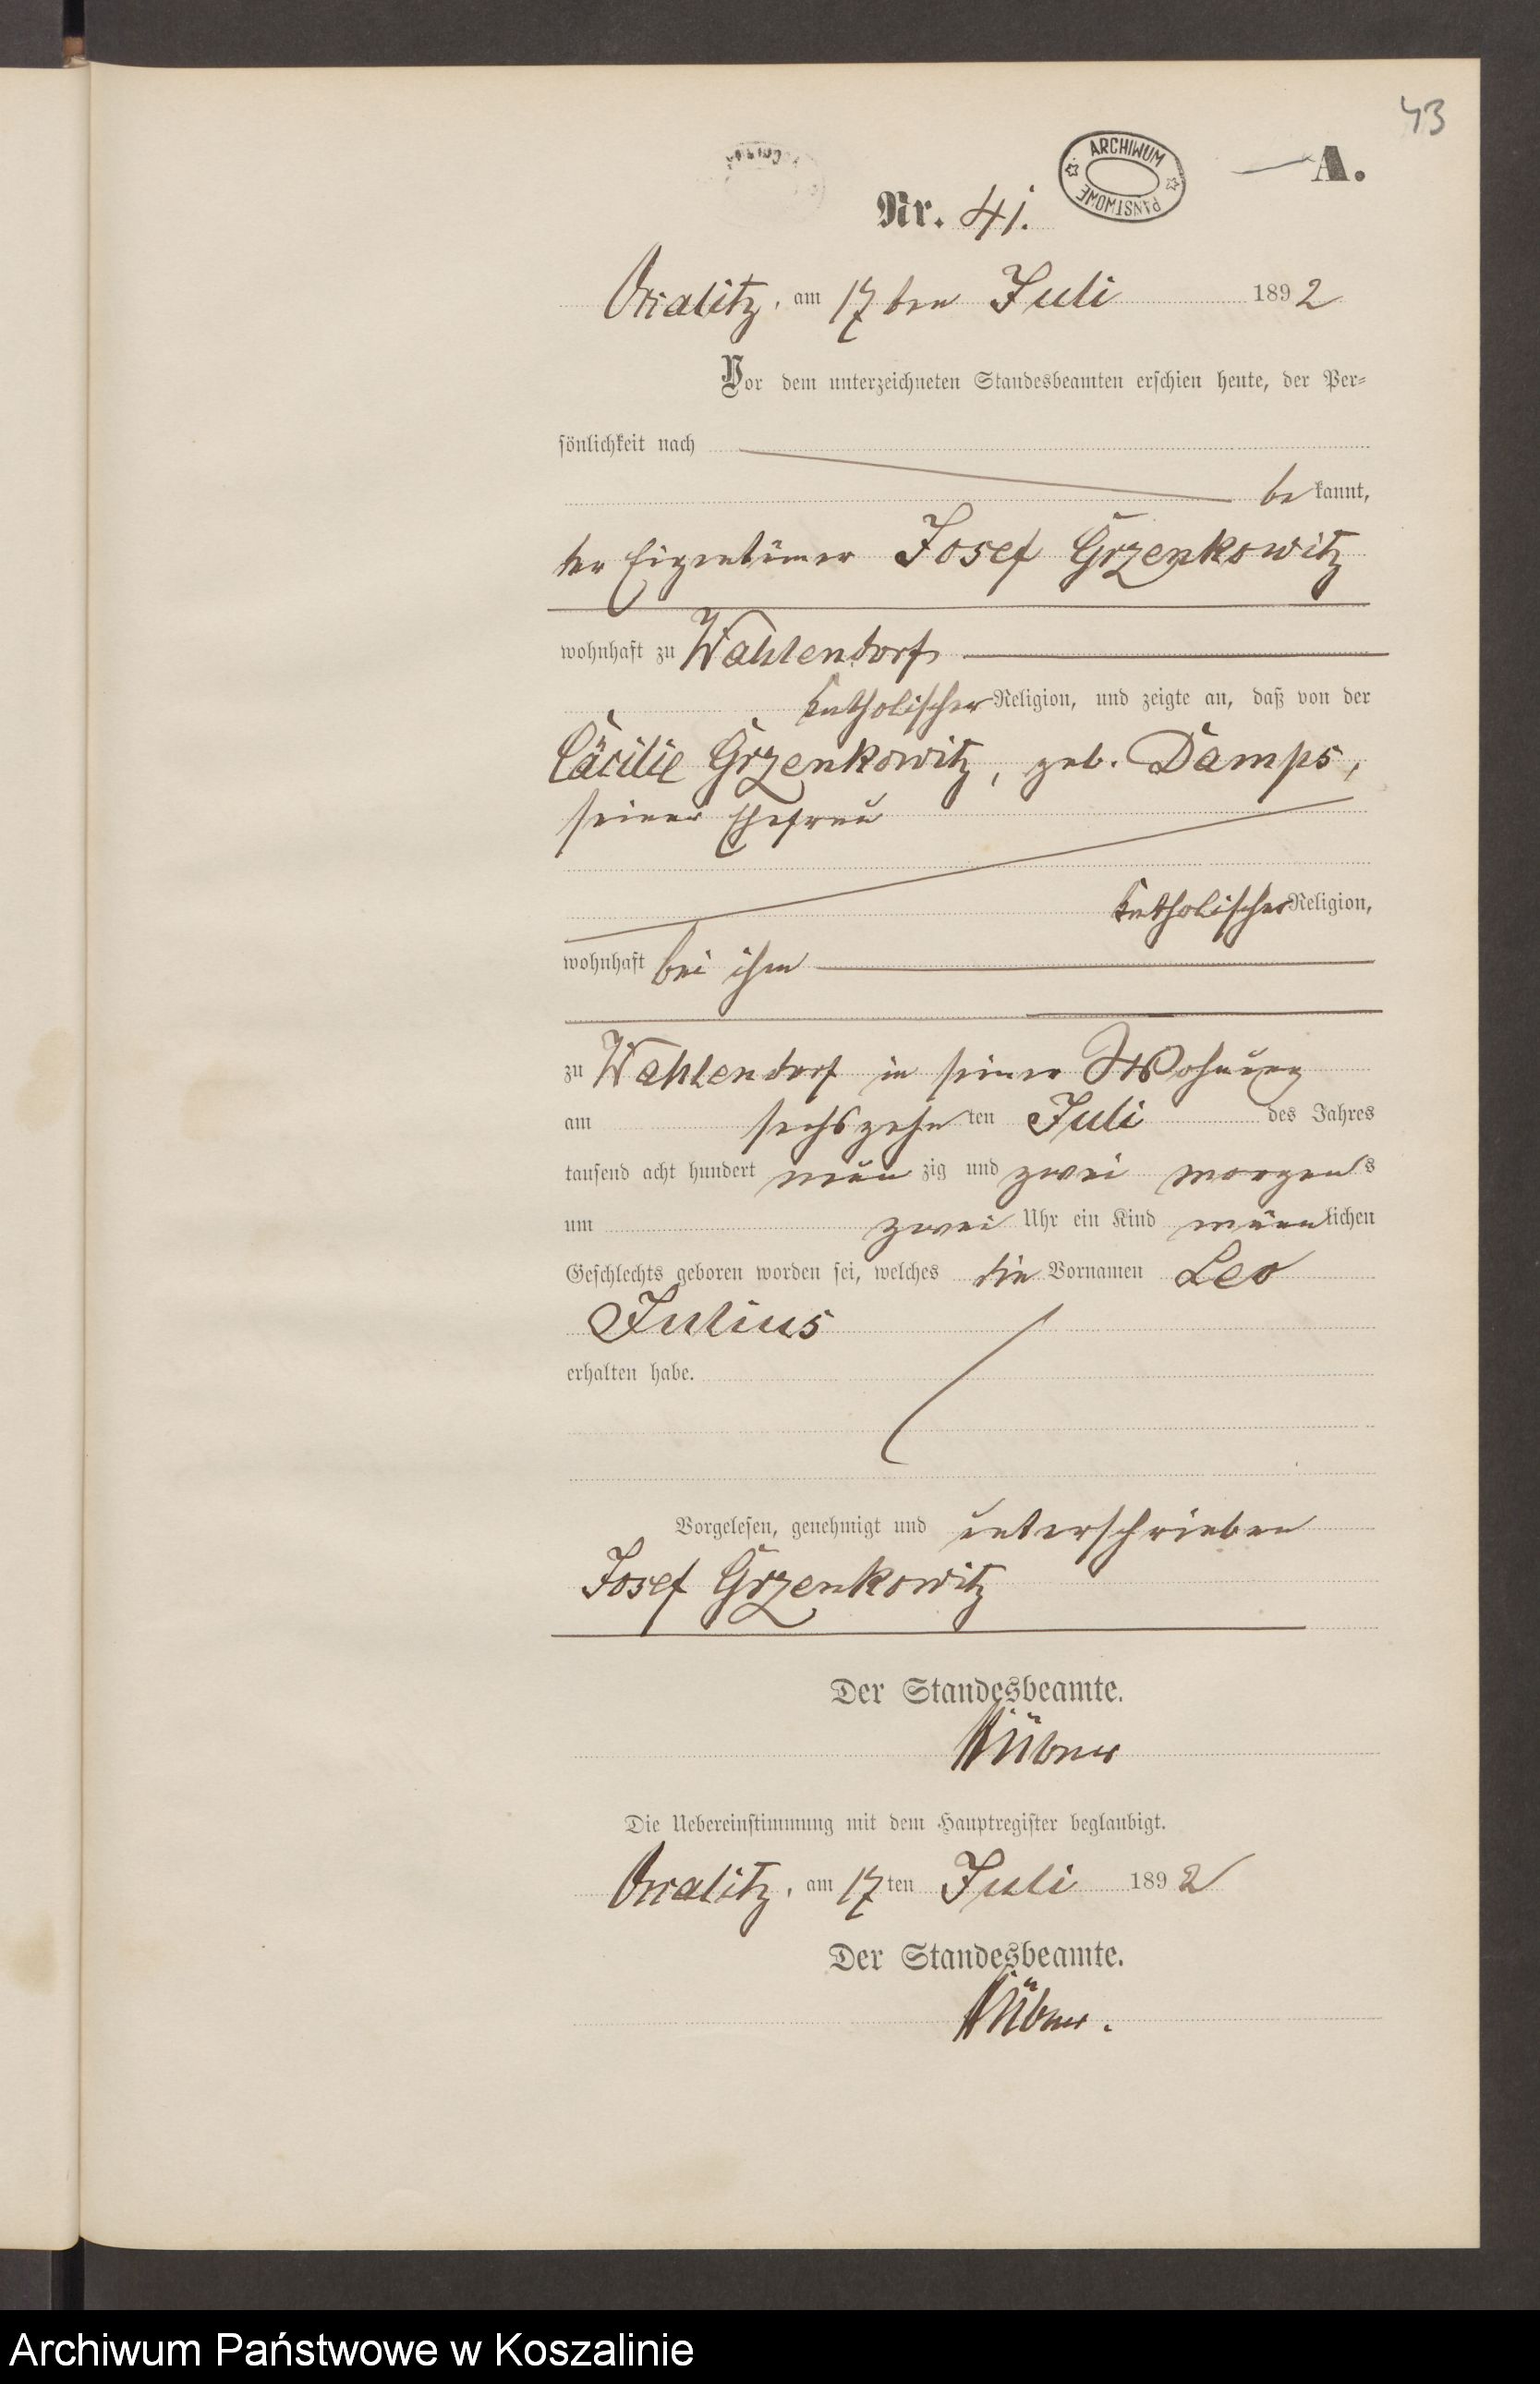 43
ARCHIWUM PAŃSTWOWE
A.
Nr. 41.
Oskalitz, am 17ten Juli 1892
Vor dem unterzeichneten Standesbeamten erschien heute, der Per-
sönlichkeit nach
be kannt,
der Eigentümer Josef Grzenkowitz
wohnhaft zu Wahlendorf
katholischer Religion, und zeigte an, daß von der
Cäcilie Grzenkowitz, geb. Damps,
seiner Ehefrau
katholischer Religion,
wohnhaft bei ihm
zu Wahlendorf in seiner Wohnung
am sechszehn ten Juli des Jahres
tausend acht hundert neun zig und zwei morgens
um zwei Uhr ein Kind männlichen
Geschlechts geboren worden sei, welches die Vornamen Leo
Julius
erhalten habe.
Vorgelesen, genehmigt und unterschrieben
Josef Grzenkowitz
Der Standesbeamte.
Hübner
Die Uebereinstimmung mit dem Hauptregister beglaubigt.
Oskalitz, am 17ten Juli 1892
Der Standesbeamte.
Hübner.
Archiwum Państwowe w Koszalinie